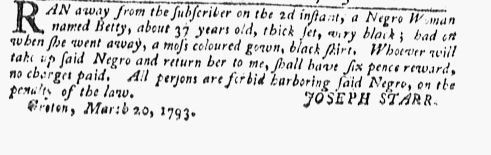 RAN away from the ſubſcriber on the 2d inſtant, a Negro Woman
named Betty, about 37 years old, thick ſet, very black; had on
when ſhe went away, a moſs coloured gown, black ſkirt. Whoever will
take up ſaid Negro and return her to me, ſhall have ſix pence reward,
no charges paid. All perſons are forbid harboring ſaid Negro, on the
penalty of the law. JOSEPH STARR.
Groton, March 20, 1793.